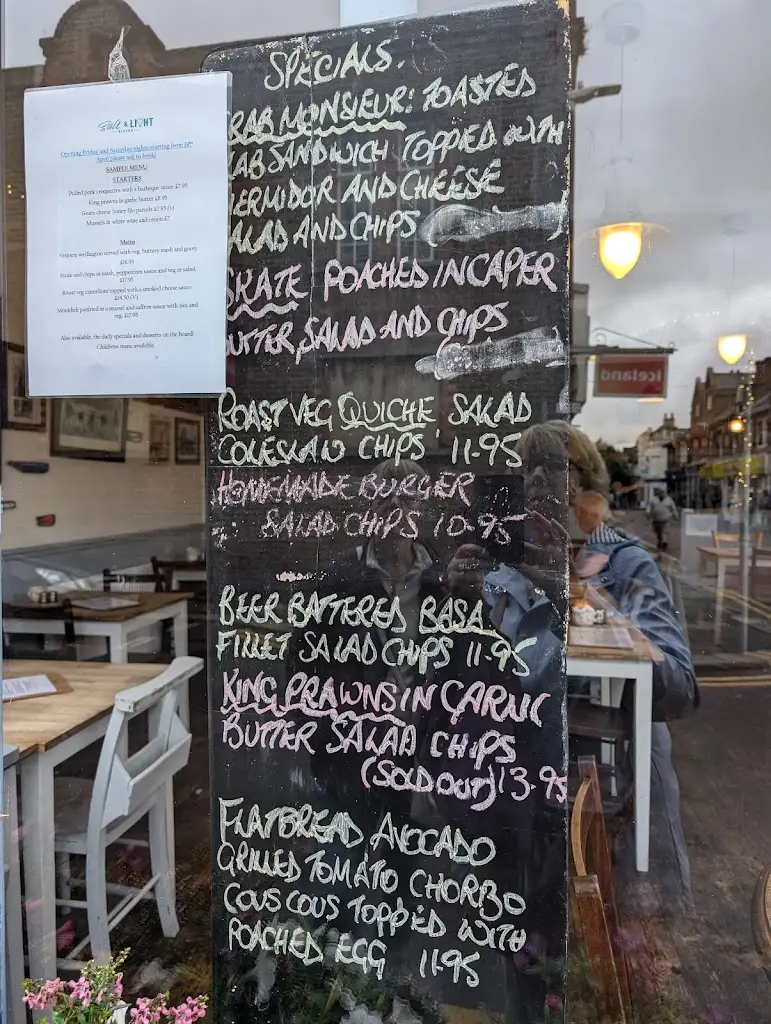 Salt & LIGHT
Opening Friday and Saturday nights starting from 10th
April please ask to book!
SAMPLE MENU
STARTERS
Pulled pork croquettes with a barbeque sauce £7.95
King prawns in garlic butter £8.95
Goats cheese honey filo parcels £7.95 (v)
Mussels in white wine and cream £7
Mains
Venison wellington served with veg, buttery mash and gravy.
Steak and chips or mash, peppercorn sauce and veg or salad.
£17.95
Roast veg cannelloni topped with a smoked cheese sauce
£14.50 (V)
Monkfish poached in a mussel and saffron sauce with rice and
veg £17.95
Also available, the daily specials and desserts on the board!
Childrens menu available
SPECIALS.
RAB MONSIEUR: TOASTED
AB SANDWICH TOPPED WITH
HERMIDOR AND CHEESE
ALAD AND CHIPS
SKATE POACHED IN CAPER
BUTTER, SALAD AND CHIPS
ROAST VEG QUICHE SALAD
COLESLAW CHIPS 11.95
HOMEMADE BURGER
SALAD CHIPS 10.95
BEER BATTERED BASA
FILLET SALAD CHIPS 11.95
KING PRAWNS IN GARLIC
BUTTER SALAD CHIPS
(SOLD OUT) 13.95
FLATBREAD AVOCADO
GRILLED TOMATO CHORIZO
COUS COUS TOPPED WITH
POACHED EGG 11.95
Iceland